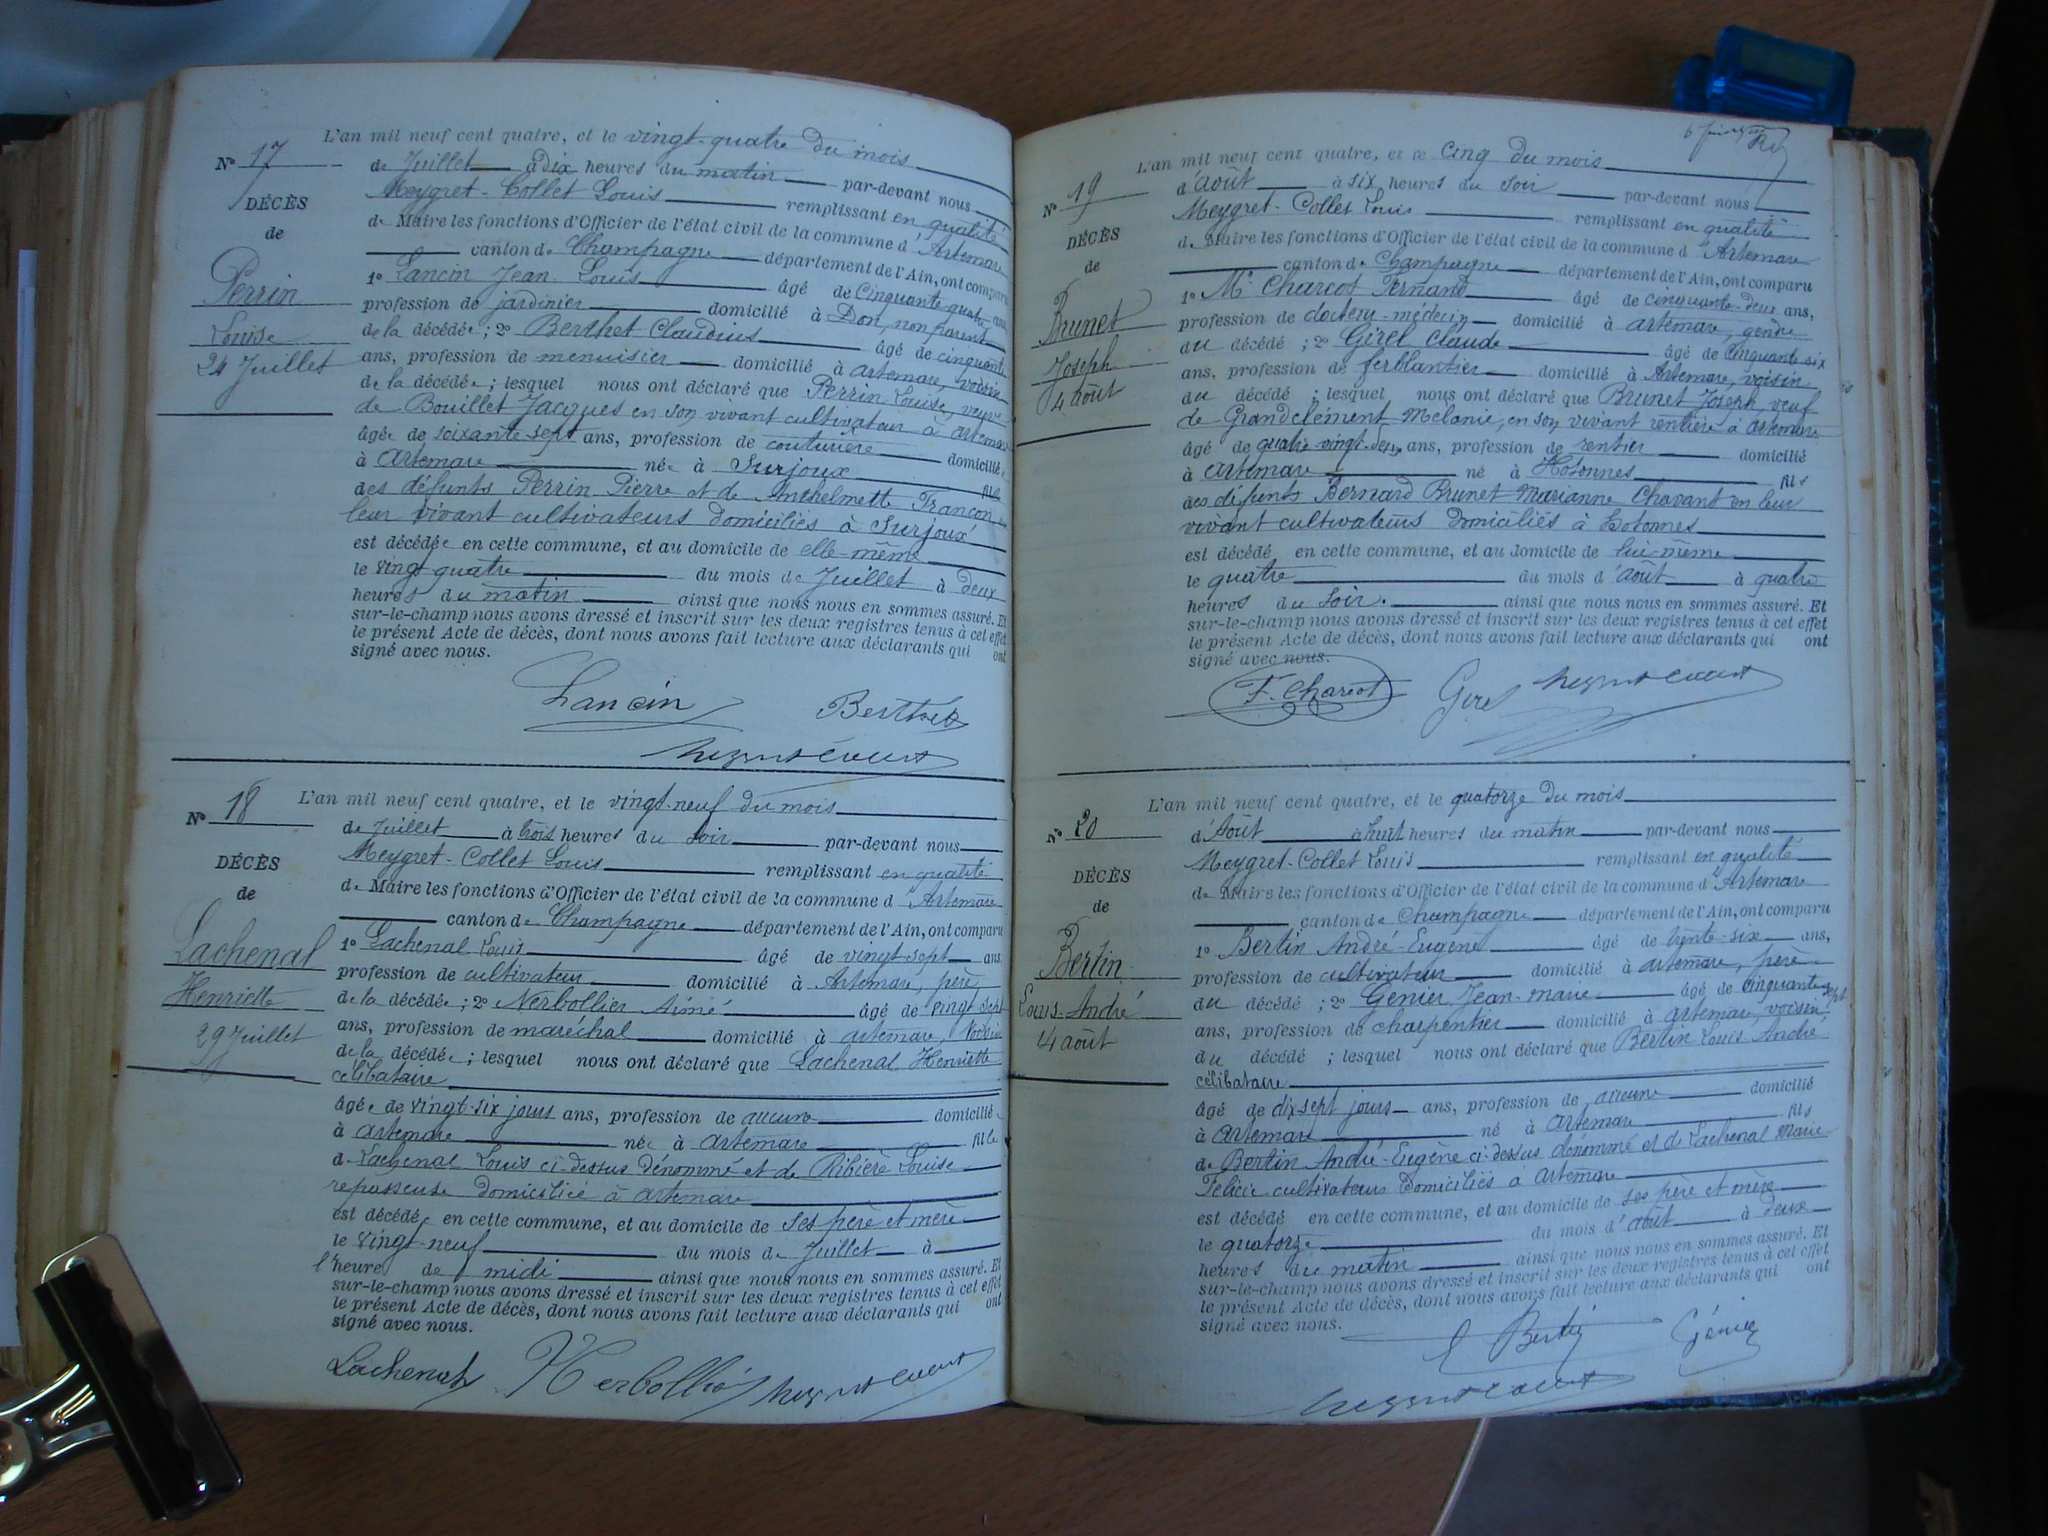 L'an mil neuf cent quatre, et le vingt-quatre du mois
No 17
de Juillet à dix heures du matin par-devant nous
Meygret-Collet Louis remplissant en qualité
DÉCÈS
de Maire les fonctions d'Officier de l'état civil de la commune d'Artemare
de
canton de Champagne département de l'Ain, ont comparu
Perrin
1o Lancin Jean Louis âgé de Cinquante-quatre ans,
profession de jardinier domicilié à Don, non parent
Louise
de la décédée ; 2o Berthet Claudius âgé de cinquante
24 Juillet
ans, profession de menuisier domicilié à artemare, voisin
de la décédée ; lesquel nous ont déclaré que Perrin Louise, veuve
de Bouillet Jacques en son vivant cultivateur à artemare
âgée de soixante sept ans, profession de couturière domiciliée
à Artemare née à Surjoux fille
des défunts Perrin Pierre et de Anthelmette Francon en
leur vivant cultivateurs domiciliés à Surjoux
est décédée en cette commune, et au domicile de elle-même
le vingt quatre du mois de Juillet à deux
heures du matin ainsi que nous nous en sommes assuré. Et
sur-le-champ nous avons dressé et inscrit sur les deux registres tenus à cet effet
le présent Acte de décès, dont nous avons fait lecture aux déclarants qui ont
signé avec nous.
Lancin Berthet
L'an mil neuf cent quatre, et le vingt-neuf du mois
No 18
de Juillet à trois heures du soir par-devant nous
Meygret-Collet Louis remplissant en qualité
DÉCÈS
de Maire les fonctions d'Officier de l'état civil de la commune d'Artemare
de
canton de Champagne département de l'Ain, ont comparu
Lachenal
1o Lachenal Louis âgé de vingt-sept ans
profession de cultivateur domicilié à Artemare, père
Henriette
de la décédée ; 2o Nerbollier Aimé âgé de vingt sept
29 Juillet
ans, profession de maréchal domicilié à artemare, voisin
de la décédée ; lesquel nous ont déclaré que Lachenal Henriette
célibataire
âgée de vingt-six jours ans, profession de aucune domiciliée
à artemare née à artemare fille
de Lachenal Louis ci-dessus dénommé et de Ribière Louise
repasseuse domiciliée à artemare
est décédée en cette commune, et au domicile de ses père et mère
le vingt-neuf du mois de Juillet à
l'heure de midi ainsi que nous nous en sommes assuré. Et
sur-le-champ nous avons dressé et inscrit sur les deux registres tenus à cet effet
le présent Acte de décès, dont nous avons fait lecture aux déclarants qui ont
signé avec nous.
Lachenal Nerbollier
L'an mil neuf cent quatre, et le cinq du mois
No 19
d'août à six heures du soir par-devant nous
Meygret-Collet Louis remplissant en qualité
DÉCÈS
de Maire les fonctions d'Officier de l'état civil de la commune d'Artemare
de
canton de Champagne département de l'Ain, ont comparu
Brunet
1o Mr Charcot Fernand âgé de cinquante-deux ans,
profession de docteur-médecin domicilié à artemare, gendre
Joseph
du décédé ; 2o Girel Claude âgé de Cinquante-six
4 août
ans, profession de ferblantier domicilié à Artemare, voisin
du décédé ; lesquel nous ont déclaré que Brunet Joseph, veuf
de Grandclément Mélanie, en son vivant rentière à artemare
âgé de quatre-vingt-deux ans, profession de rentier domicilié
à artemare né à Hotonnes fils
des défunts Bernard Brunet Marianne Chavant en leur
vivant cultivateurs domiciliés à Hotonnes
est décédé en cette commune, et au domicile de lui-même
le quatre du mois d'août à quatre
heures du soir. ainsi que nous nous en sommes assuré. Et
sur-le-champ nous avons dressé et inscrit sur les deux registres tenus à cet effet
le présent Acte de décès, dont nous avons fait lecture aux déclarants qui ont
signé avec nous.
F. Charcot Girel
L'an mil neuf cent quatre, et le quatorze du mois
No 20
d'Août à huit heures du matin par-devant nous
Meygret-Collet Louis remplissant en qualité
DÉCÈS
de Maire les fonctions d'Officier de l'état civil de la commune d'Artemare
de
canton de Champagne département de l'Ain, ont comparu
Bertin
1o Bertin André-Eugène âgé de trente-six ans,
profession de cultivateur domicilié à artemare, père
Louis-André
du décédé ; 2o Génier Jean-marie âgé de Cinquante sept
14 août
ans, profession de charpentier domicilié à artemare, voisin
du décédé ; lesquel nous ont déclaré que Bertin Louis André
célibataire
âgé de dix sept jours ans, profession de aucune domicilié
à artemare né à artemare fils
de Bertin André-Eugène ci-dessus dénommé et de Lachenal Marie
Félicie cultivateurs domiciliés à artemare
est décédé en cette commune, et au domicile de ses père et mère
le quatorze du mois d'août à deux
heures du matin ainsi que nous nous en sommes assuré. Et
sur-le-champ nous avons dressé et inscrit sur les deux registres tenus à cet effet
le présent Acte de décès, dont nous avons fait lecture aux déclarants qui ont
signé avec nous.
E Bertin Génier